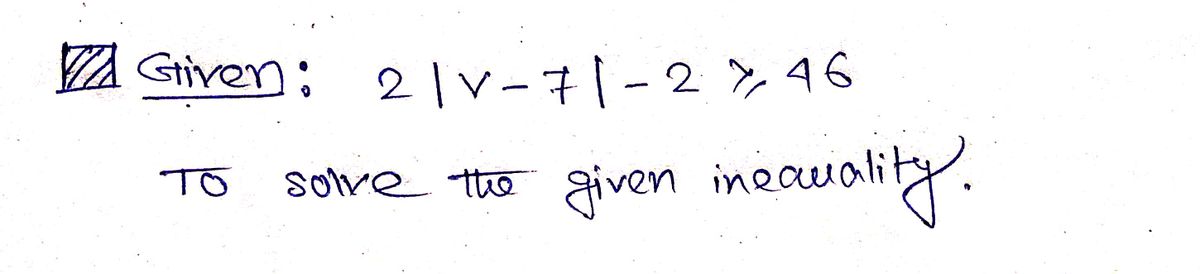 Given: 2|v-7|-2 ≥ 46
To solve the given inequality.